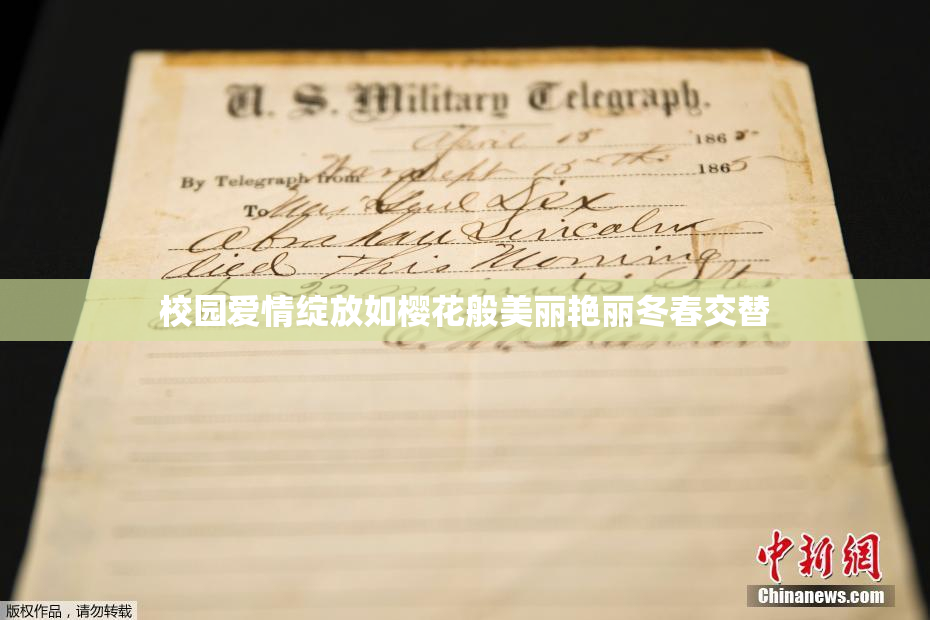 U. S. Military Telegraph.
April 15 1865.
By Telegraph from War Dept 15th 1865
To Maj Genl Dix
Abraham Lincoln
died This Morning
at 22 minutes after
校园爱情绽放如樱花般美丽艳丽冬春交替
E. M. Stanton
中新网
Chinanews.com
版权作品，请勿转载